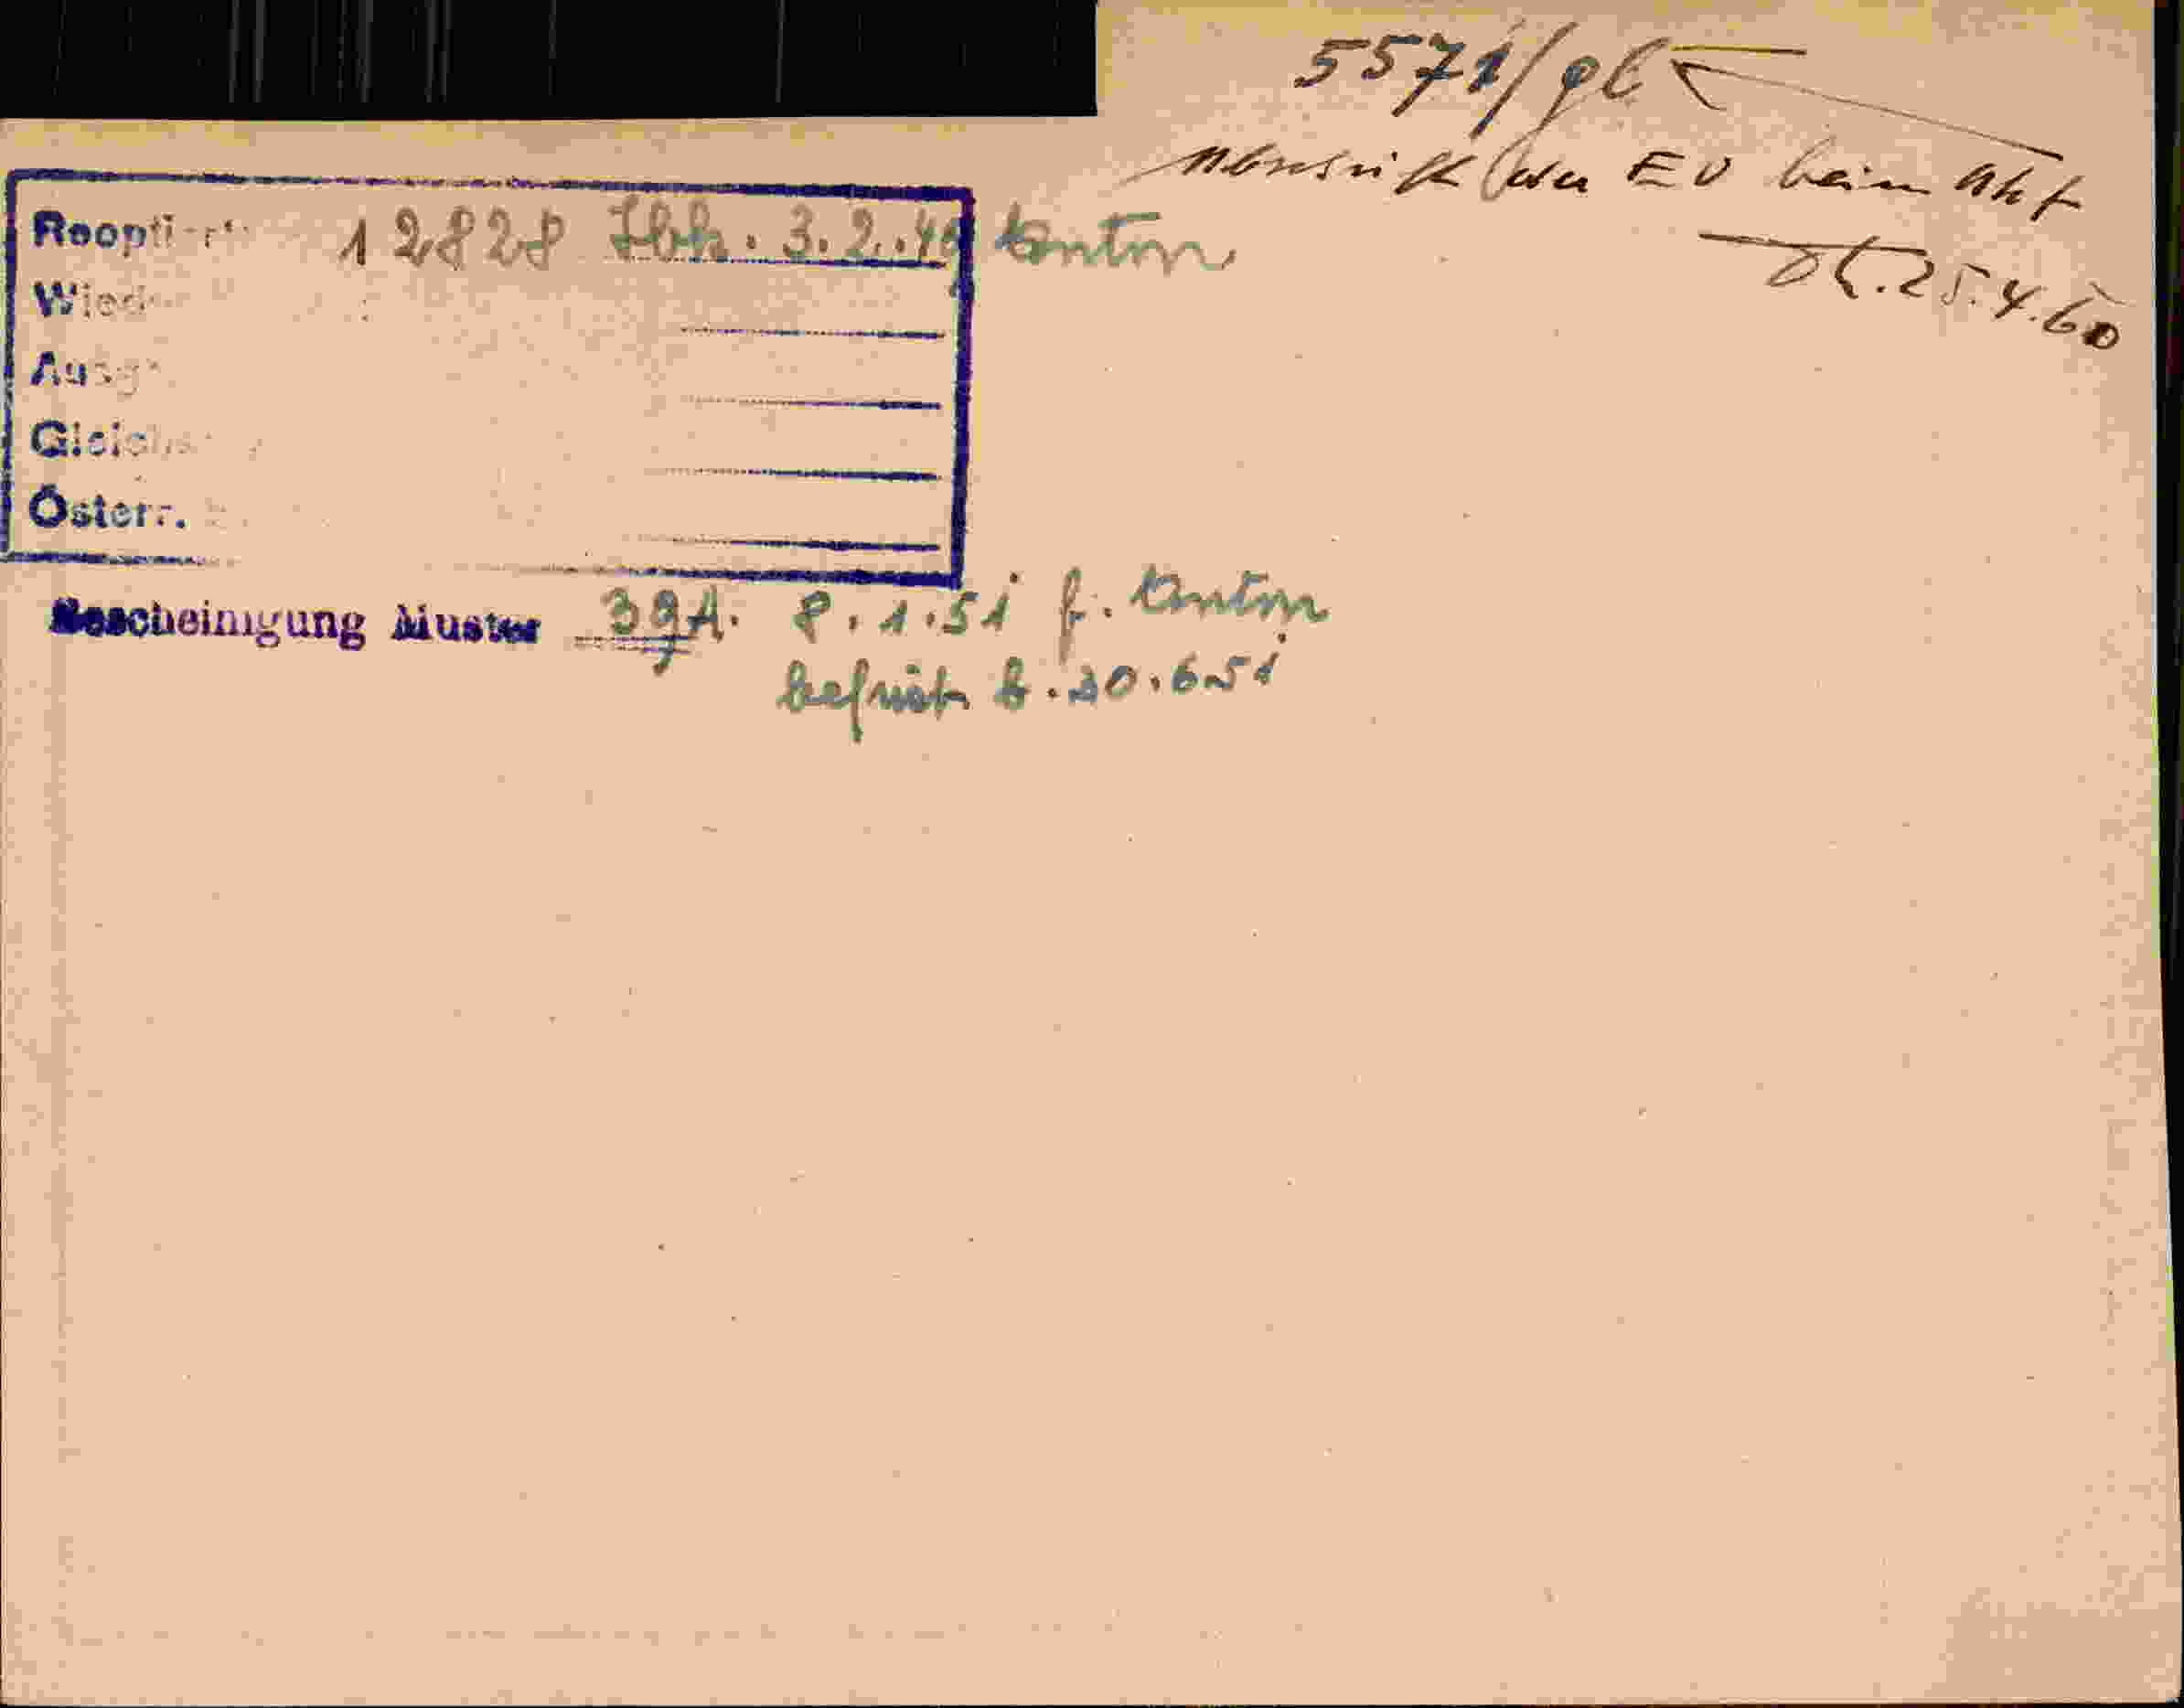 5571/gl
Abschrift der EV beim Akt
25.4.60
Reopti
12828 Ibk. 3.2.
Wied
Ausg
Gleichs
Österr.
Bescheinigung Muster 39A. 8.1.51 f.
befrist. b. 30.6.51